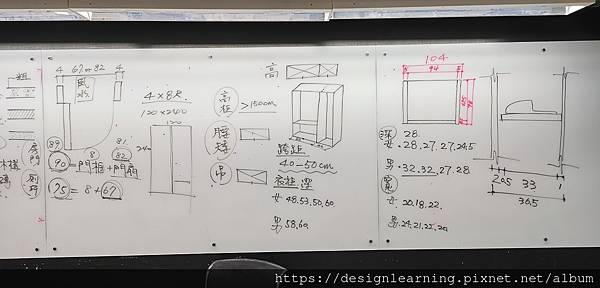 粗
4 67 or 82 4
風
89
90 = 門框 + 門扇
8
81
82
75 = 8 + 67
房門
廁所
4×8尺
120×240
120
240
高
高柜 >150cm
腰
吊
跨距
40-50cm
衣柜 深
女 48.53.50.60
男 58.60.
104
94
深 28.
女.28.27.27.24.5
男.32.32.27.28
寬
女 20.18.22.
男.24.21.22.20
2 0.5 33 1
36.5
https://designlearning.pixnet.net/album